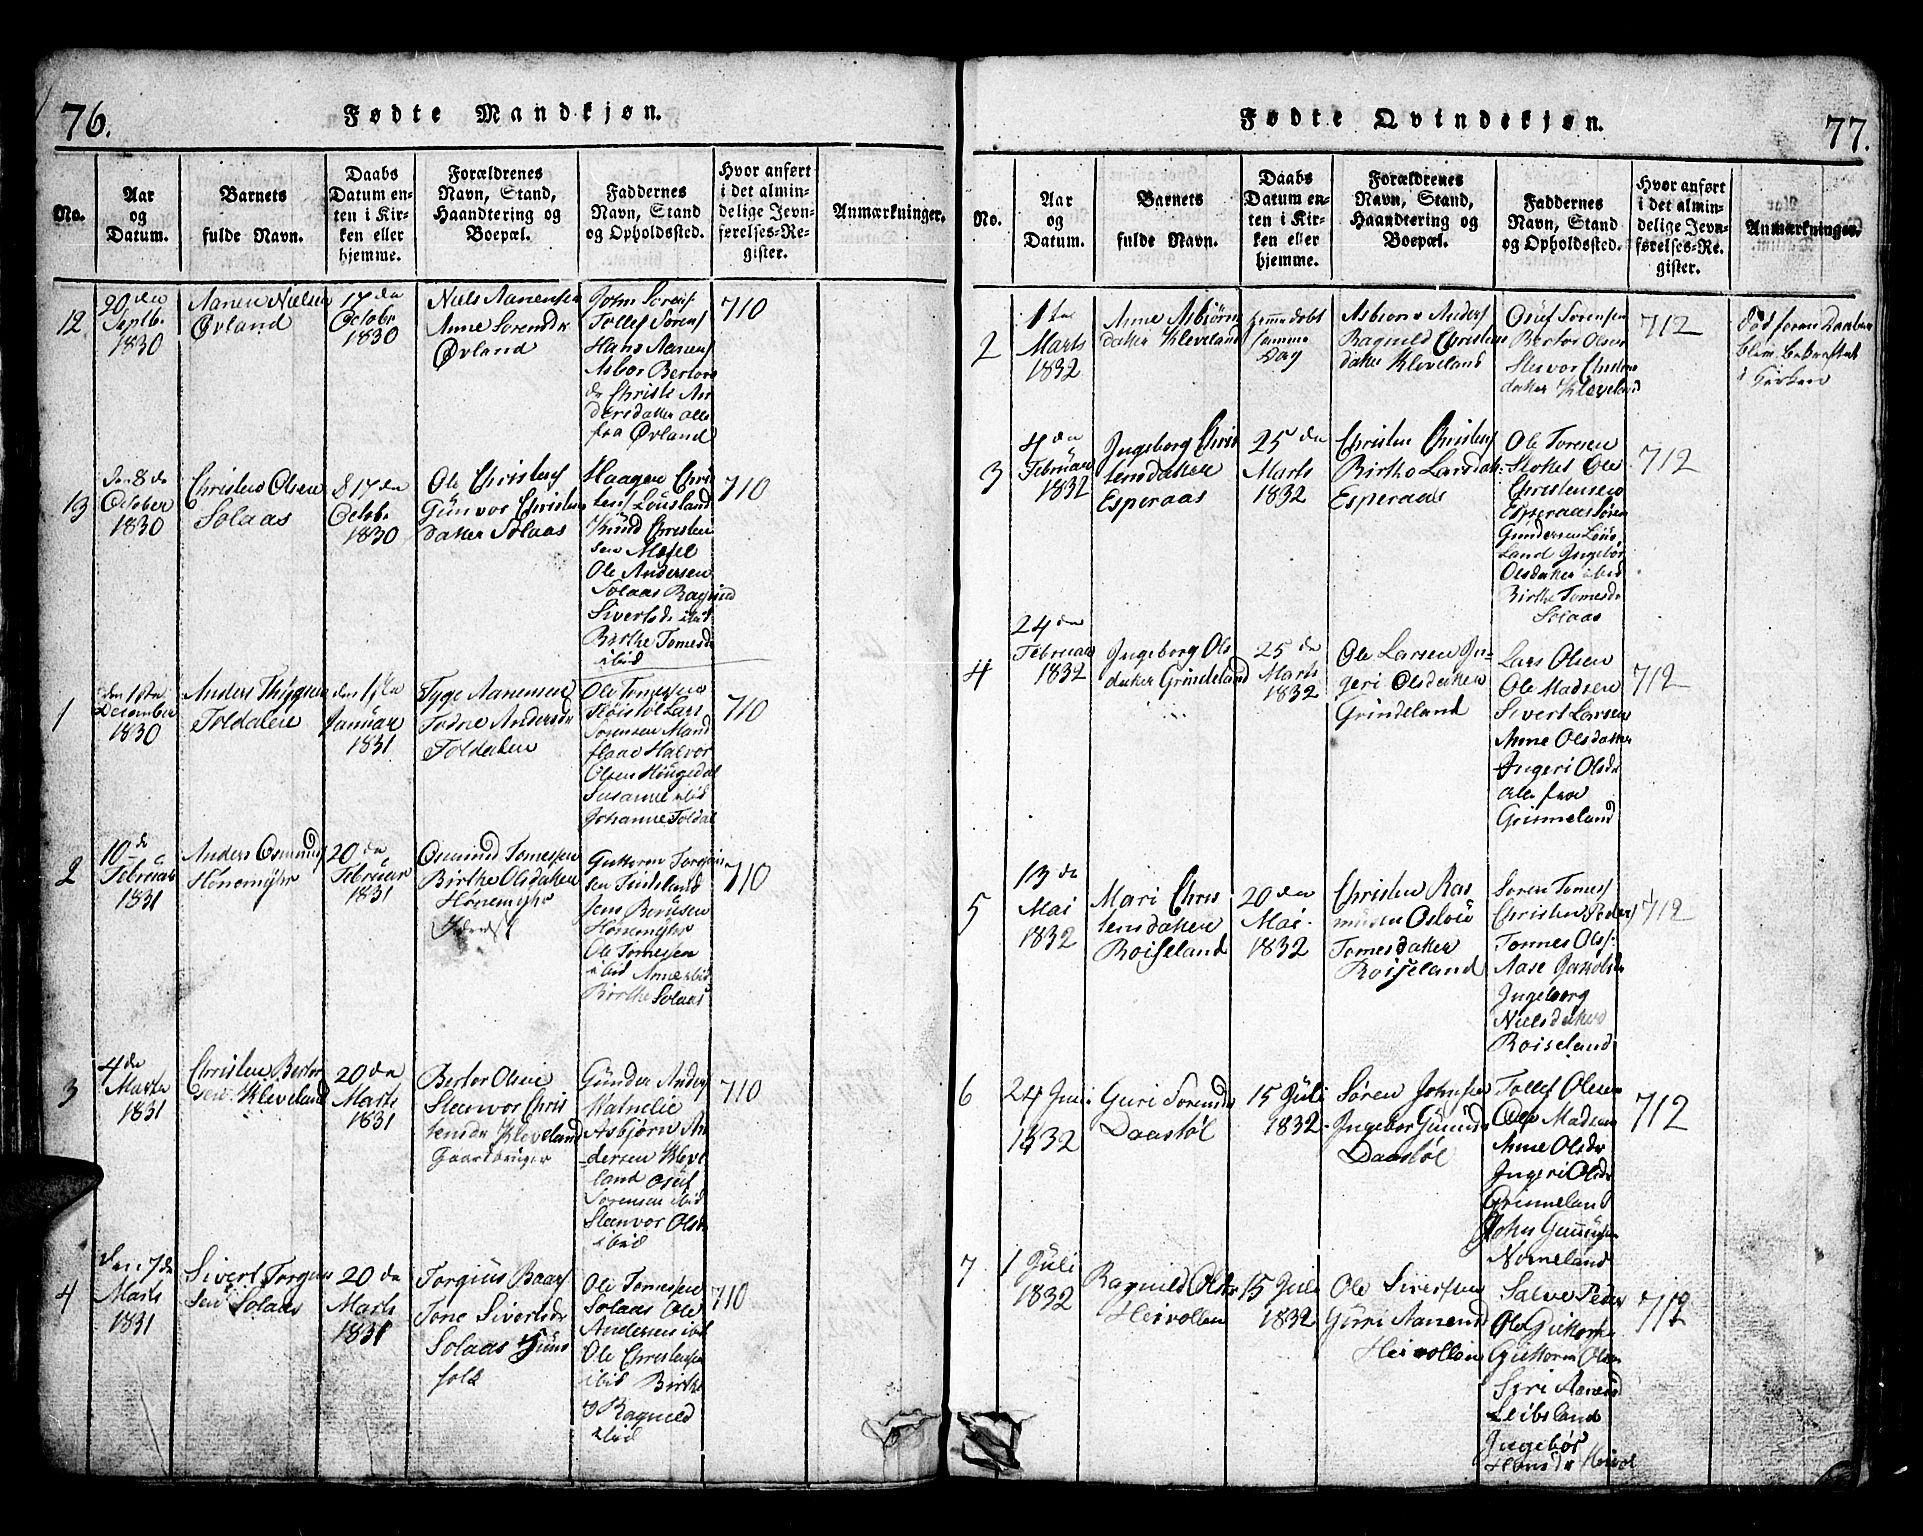 76.
Fødte Mandkjøn.
No.
Aar
og
Datum.
Barnets
fulde Navn.
Daabs
Datum en-
ten i Kir-
ken eller
hjemme.
Forældrenes
Navn, Stand,
Haandtering og
Boepæl.
Faddernes
Navn, Stand
og Opholdssted.
Hvor anført
i det almin-
delige Jevn-
førelses-Re-
gister.
Anmærkninger.
12
20 de
Septb.
1830
Aanen Nielsen
Øvland
17 de
Octobr
1830
Niels Aanensen
Anne Sorensdr
Øvland
John Sorens
Tollef Sorens
Hans Aanens
Asbor Bertors
dr Christi An
dersdatter alle
fra Øvland
710
13
den 8 de
October
1830
Christen Olsen
Solaas
17 de
Octob.
1830
Ole Christens
Gunvor Christens
datter Solaas
Haagen Chri
tens Lousland
Knud Christen
sen Mosel
Ole Andersen
Solaas Ragnild
Sivertsdr ibid
Birthe Tomesdr
ibid
710
1
den 1ste
December
1830
Anders Thygsen
Toldalen
den 1ste
Januar
1831
Tyge Aanensen
Todne Andersdr
Toldalen
Ole Tomessen
Røistøl Lars
Sorensen Mand
flaae Halvor
Olsen Hougedal
Susanne ibid
Johanne Toldal
710
2
10 de
Februar
1831
Anders Osmunds
Hønemyhr
20 de
Februar
1831
Osmund Tomessen
Birthe Olsdatter
Hønemyhr
Guttorm Torgius
sen Fuidsland
Jens Beruisen
Hønemyhr
Ole Tomessen
ibid Anne ibid
Birthe Solaas
710
3
4 de
Marts
1831
Christen Bertor
sen Kleveland
20 de
Marts
1831
Bertor Olsen
Steenvor Chris
tensdr Kleveland
Gaardbruger
Gunder Anders
Hatnelie
Asbjørn An
dersen Kleve
land Osuf
Sorensen ibid
Steenvor Olsdr
ibid
710
4
den 7 de
Marts
1831
Sivert Torgius
sen Solaas
20 de
Marts
1831
Torgius Baars
Tone Sivertsdr
Solaas Huus
folk
Ole Tomessen
Solaas Ole
Andersen ibid
Ole Christensen
ibid Birthe
& Ragnild
ibid
710
77.
Fødte Qvindekjøn.
No.
Aar
og
Datum.
Barnets
fulde Navn.
Daabs
Datum en-
ten i Kir-
ken eller
hjemme.
Forældrenes
Navn, Stand,
Haandtering og
Boepæl.
Faddernes
Navn, Stand
og Opholdssted.
Hvor anført
i det almin-
delige Jevn-
førelses-Re-
gister.
Anmærkninger.
2
1ste
Marts
1832
Anne Asbjørns
datter Kleveland
hjemmedøbt
samme
Dag
Asbiorn Anders
Ragnild Christens
datter Kleveland
Osuf Sorensen
Bertor Olsen
Stesvor Christens
datter Kleveland
712
Død foran Daaben
blev bekræftet
i Kirken
3
4 de
Februar
1832
Ingeborg Chris
tensdatter
Esperaas
25 de
Marts
1832
Christen Christens
Birthe Larsdat:
Esperaas
Ole Toresen
Stokes Ole
Christensen
Esperaas Søren
Gundersen Lous
Land Ingebor
Olsdatter ibid
Birthe Tomesdr
Solaas
712
4
24 de
Februar
1832
Ingeborg Ols
datter Grindeland
25 de
Marts
1832
Ole Larsen In-
geri Olsdatter
Grindeland
Lars Olsen
Ole Madsen
Sivert Larsen
Anne Olsdatter
Ingeri Olsdr
alle fra
Grinneland
712
5
13 de
Mai
1832
Mari Chris
tensdatter
Roiseland
20 de
Mai
1832
Christen Ras
mussen Oslou
Tomesdatter
Roiseland
Soren Tomes
Christen Peders
Tonnes Ols:
Aase Gunvolsdr
Ingeborg
Nielsdatter
Roiseland
712
6
24 Juni
1832
Guri Sorensdr
Daastøl
15 Juli
1832
Søren Johnsen
Ingebor Gunnds
Daastøl
Tollef Olsen
Ole Madsen
Anne Olsdr
Ingeri Olsdr
Grinneland
John Gunnufsen
Nomeland
712
7
1 Juli
1832
Ragnild Olsdr
Heivollen
15 Juli
1832
Ole Sivertsen
Guri Aanensd
Heivollen
Salve Peder
Ole Guttorms
Guttorm Olsen
Siri Aanensd
Leibsland
Ingebør
Hansdr Heivol
712